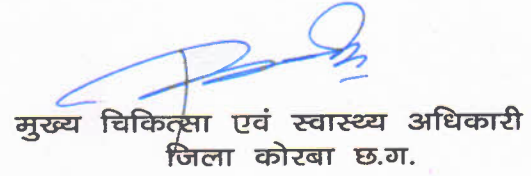 मुख्य चिकित्सा एवं स्वास्थ्य अधिकारी
जिला कोरबा छ.ग.